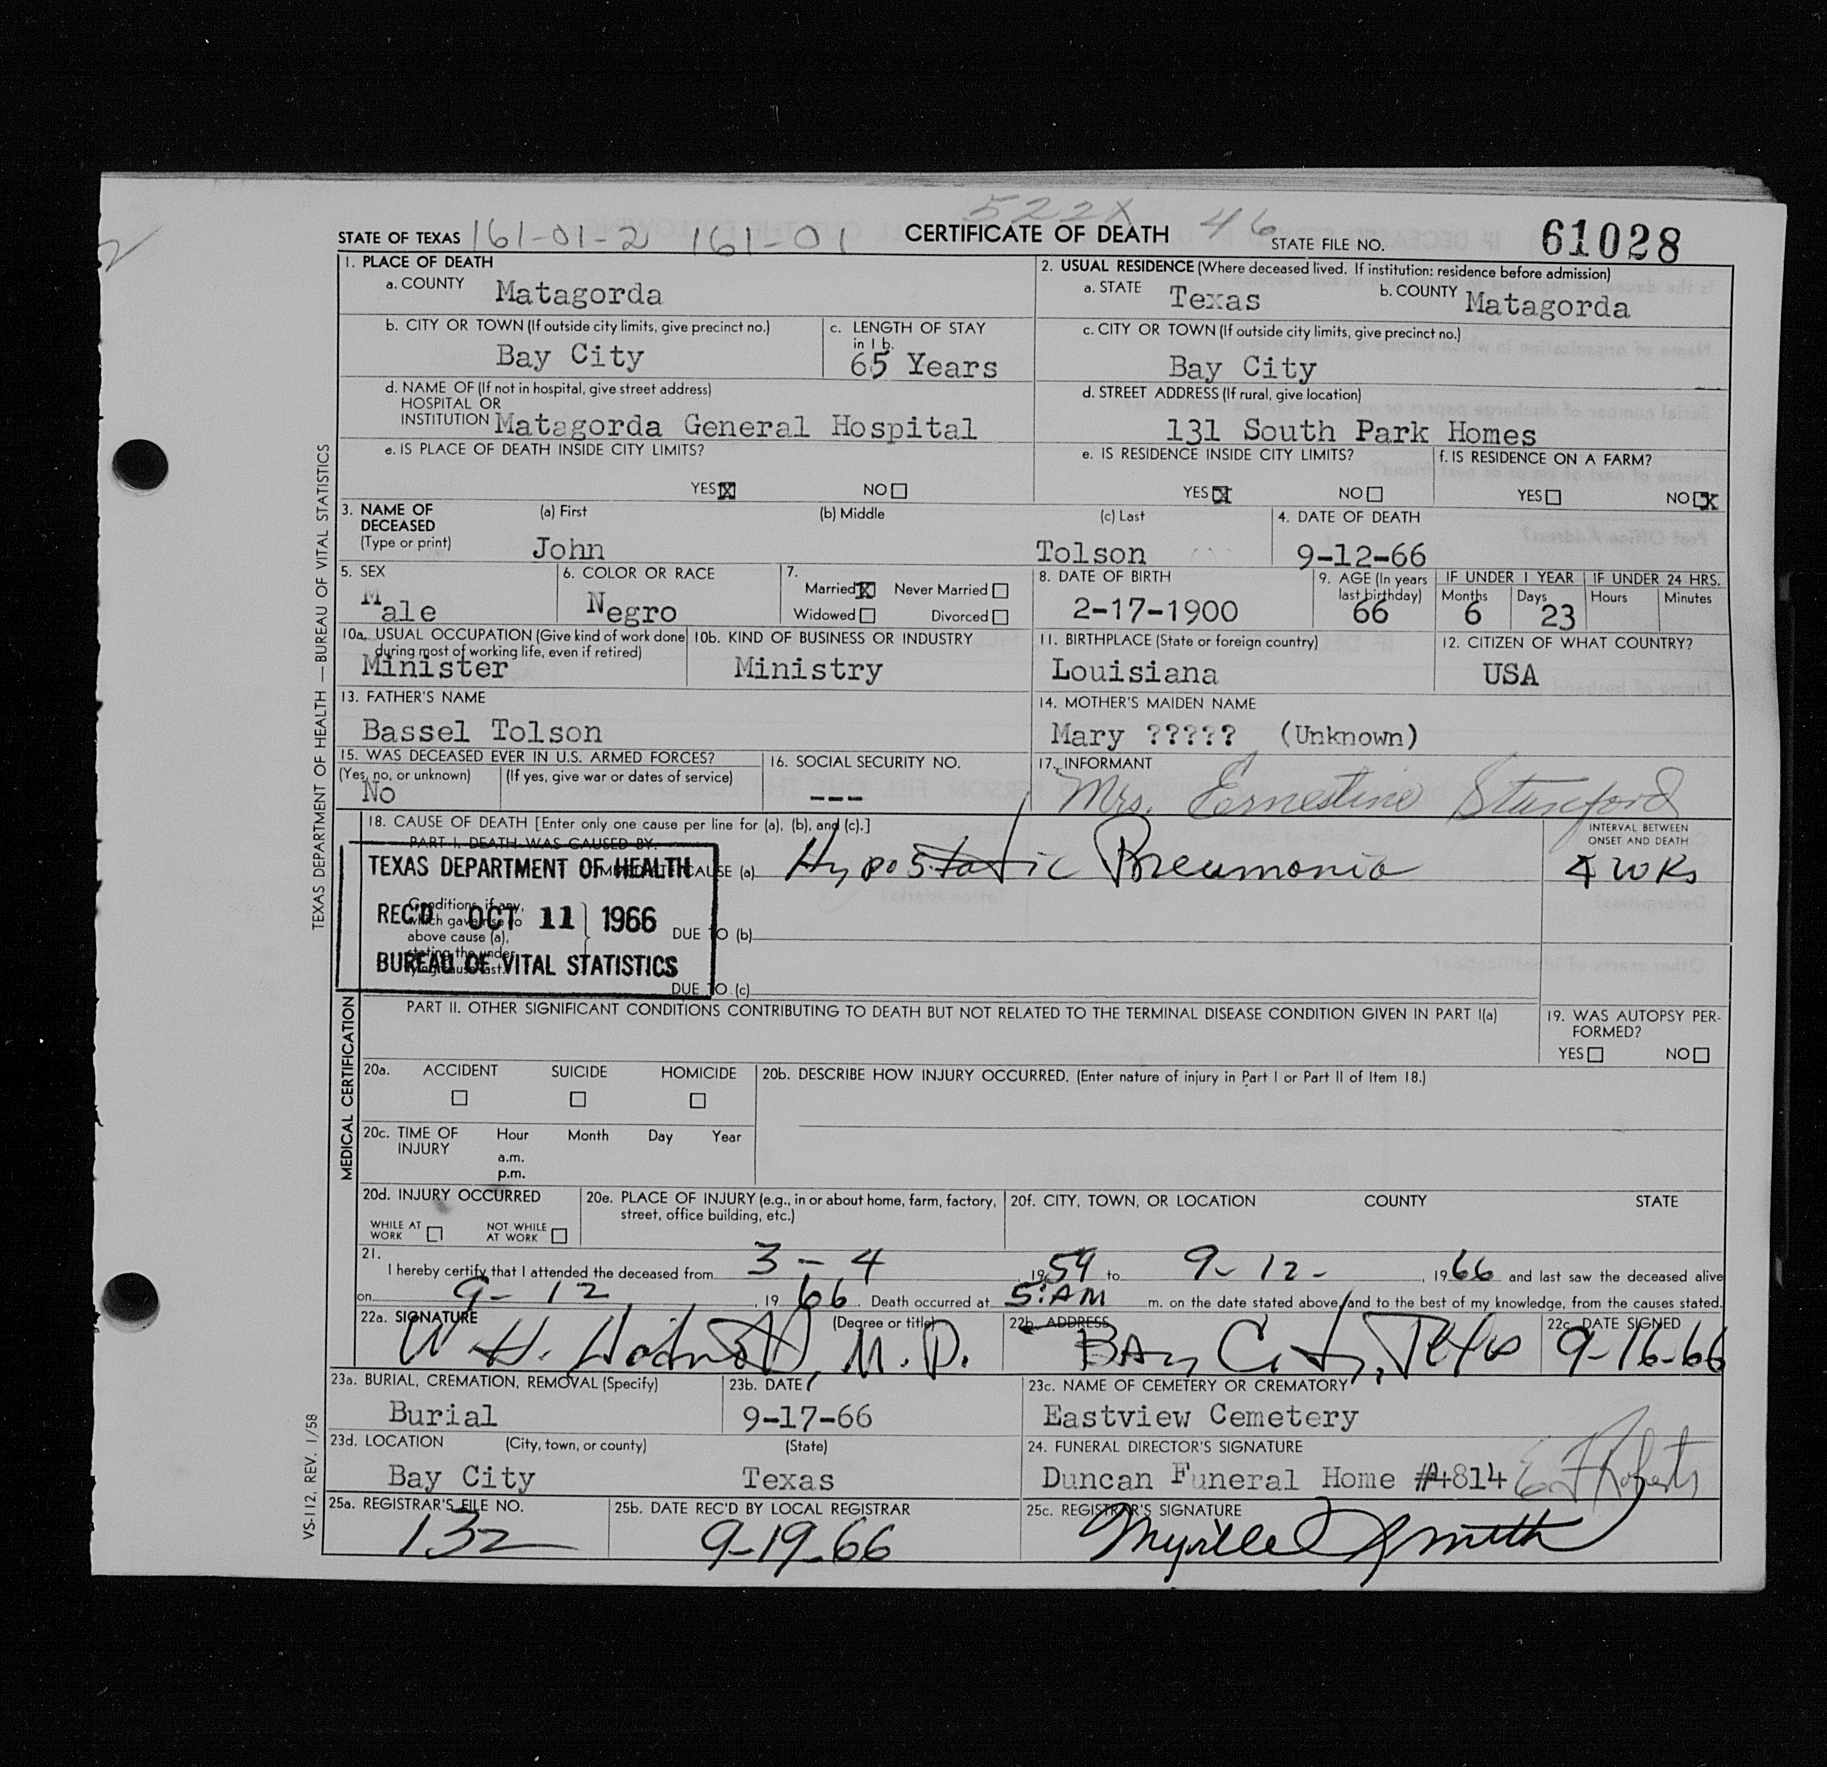 522X 46
STATE OF TEXAS 161-01-2 161-01 CERTIFICATE OF DEATH STATE FILE NO. 61028
1. PLACE OF DEATH
a. COUNTY Matagorda
2. USUAL RESIDENCE (Where deceased lived. If institution: residence before admission)
a. STATE Texas b. COUNTY Matagorda
b. CITY OR TOWN (If outside city limits, give precinct no.)
Bay City
c. LENGTH OF STAY
in 1 b.
65 Years
c. CITY OR TOWN (If outside city limits, give precinct no.)
Bay City
d. NAME OF (If not in hospital, give street address)
HOSPITAL OR
INSTITUTION Matagorda General Hospital
d. STREET ADDRESS (If rural, give location)
131 South Park Homes
e. IS PLACE OF DEATH INSIDE CITY LIMITS?
YES X NO
e. IS RESIDENCE INSIDE CITY LIMITS?
YES X NO
f. IS RESIDENCE ON A FARM?
YES NO X
3. NAME OF
DECEASED
(Type or print)
(a) First (b) Middle (c) Last
John Tolson
4. DATE OF DEATH
9-12-66
5. SEX
Male
6. COLOR OR RACE
Negro
7.
Married X Never Married
Widowed Divorced
8. DATE OF BIRTH
2-17-1900
9. AGE (In years
last birthday)
66
IF UNDER 1 YEAR
Months Days
6 23
IF UNDER 24 HRS.
Hours Minutes
10a. USUAL OCCUPATION (Give kind of work done
during most of working life, even if retired)
Minister
10b. KIND OF BUSINESS OR INDUSTRY
Ministry
11. BIRTHPLACE (State or foreign country)
Louisiana
12. CITIZEN OF WHAT COUNTRY?
USA
13. FATHER'S NAME
Bassel Tolson
14. MOTHER'S MAIDEN NAME
Mary ????? (Unknown)
15. WAS DECEASED EVER IN U.S. ARMED FORCES?
(Yes, no, or unknown) (If yes, give war or dates of service)
No
16. SOCIAL SECURITY NO.
---
17. INFORMANT
Mrs. Ernestine
18. CAUSE OF DEATH [Enter only one cause per line for (a), (b), and (c).]
PART I. DEATH WAS CAUSED BY:
IMMEDIATE CAUSE (a) Hypostatic Pneumonia
INTERVAL BETWEEN
ONSET AND DEATH
4 wks
TEXAS DEPARTMENT OF HEALTH
REC'D OCT 11 1966
BUREAU OF VITAL STATISTICS
Conditions, if any,
which gave rise to
above cause (a),
stating the under-
lying cause last.
DUE TO (b)
DUE TO (c)
PART II. OTHER SIGNIFICANT CONDITIONS CONTRIBUTING TO DEATH BUT NOT RELATED TO THE TERMINAL DISEASE CONDITION GIVEN IN PART I(a)
19. WAS AUTOPSY PER-
FORMED?
YES NO
20a. ACCIDENT SUICIDE HOMICIDE
20b. DESCRIBE HOW INJURY OCCURRED. (Enter nature of injury in Part I or Part II of Item 18.)
20c. TIME OF
INJURY
Hour Month Day Year
a.m.
p.m.
20d. INJURY OCCURRED
WHILE AT
WORK
NOT WHILE
AT WORK
20e. PLACE OF INJURY (e.g., in or about home, farm, factory,
street, office building, etc.)
20f. CITY, TOWN, OR LOCATION COUNTY STATE
21.
I hereby certify that I attended the deceased from 3-4, 1959 to 9-12-, 1966 and last saw the deceased alive
on 9-12, 1966. Death occurred at 5:AM m. on the date stated above, and to the best of my knowledge, from the causes stated.
22a. SIGNATURE (Degree or title)
W. H. M.D.
22b. ADDRESS
Bay City, Texas
22c. DATE SIGNED
9-16-66
23a. BURIAL, CREMATION, REMOVAL (Specify)
Burial
23b. DATE
9-17-66
23c. NAME OF CEMETERY OR CREMATORY
Eastview Cemetery
23d. LOCATION (City, town, or county) (State)
Bay City Texas
24. FUNERAL DIRECTOR'S SIGNATURE
Duncan Funeral Home #4814 Roberts
25a. REGISTRAR'S FILE NO.
132
25b. DATE REC'D BY LOCAL REGISTRAR
9-19-66
25c. REGISTRAR'S SIGNATURE
Myrille Smith
TEXAS DEPARTMENT OF HEALTH—BUREAU OF VITAL STATISTICS
MEDICAL CERTIFICATION
VS-112, REV. 1/58